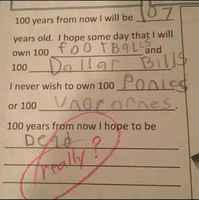 100 years from now I will be 107
years old. I hope some day that I will
own 100 footBalls and
100 Dollar Bills
I never wish to own 100 Ponies
or 100 Unacornes.
100 years from now I hope to be
Dead
really?